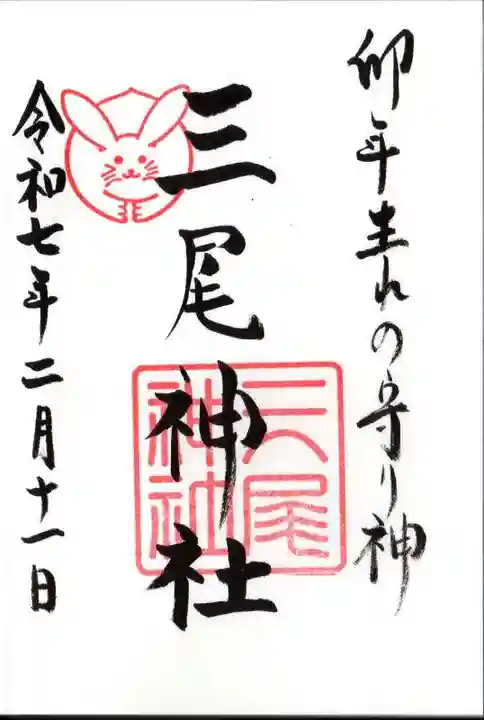 卯年生れの守り神
三尾神社
三尾
神社
令和七年二月十一日